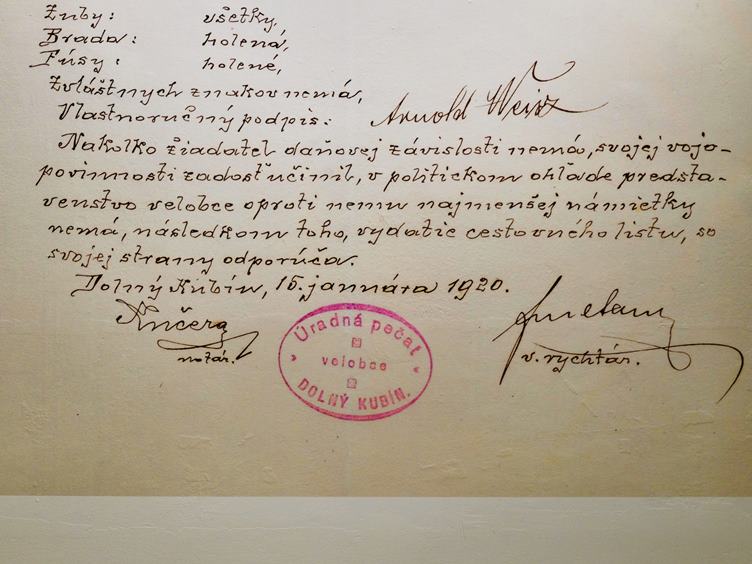 Zuby: všetky,
Brada: holená,
Fúsy: holené,
Zvláštnych znakov nemá,
Vlastnoručný podpis: Arnold Weisz
Nakolko žiadatel daňovej závislosti nemá, svojej vojo-
povinnosti zadosťučinil, v politickom ohlade predsta-
venstvo velobce oproti nemu najmenšej námietky
nemá, následkom toho, vydatie cestovného listu, so
svojej strany odporúča.
Dolný Kubín, 15. januára 1920.
notár.
Úradná pečat
velobce
DOLNÝ KUBÍN.
v. rychtár.